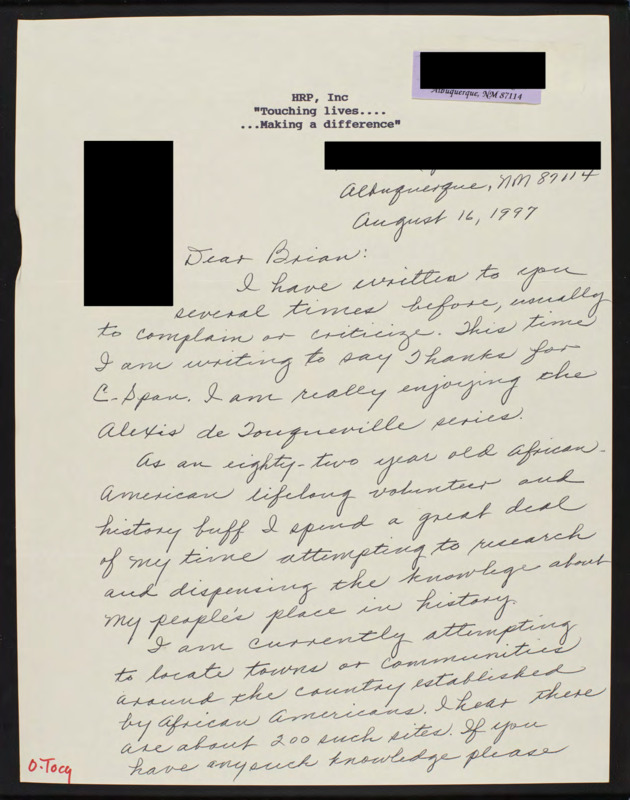 Albuquerque, NM 87114
HRP, Inc
"Touching lives....
...Making a difference"
Albuquerque, NM 87114
August 16, 1997
Dear Brian:
I have written to you
several times before, usually
to complain or criticize. This time
I am writing to say Thanks for
C-Span. I am really enjoying the
Alexis de Touqueville series.
As an eighty-two year old African-
American lifelong volunteer and
history buff I spend a great deal
of my time attempting to research
and dispensing the knowlege about
my people's place in history.
I am currently attempting
to locate towns or communities
around the country established
by African Americans. I hear there
are about 200 such sites. If you
have any such knowledge please
D-Tocq